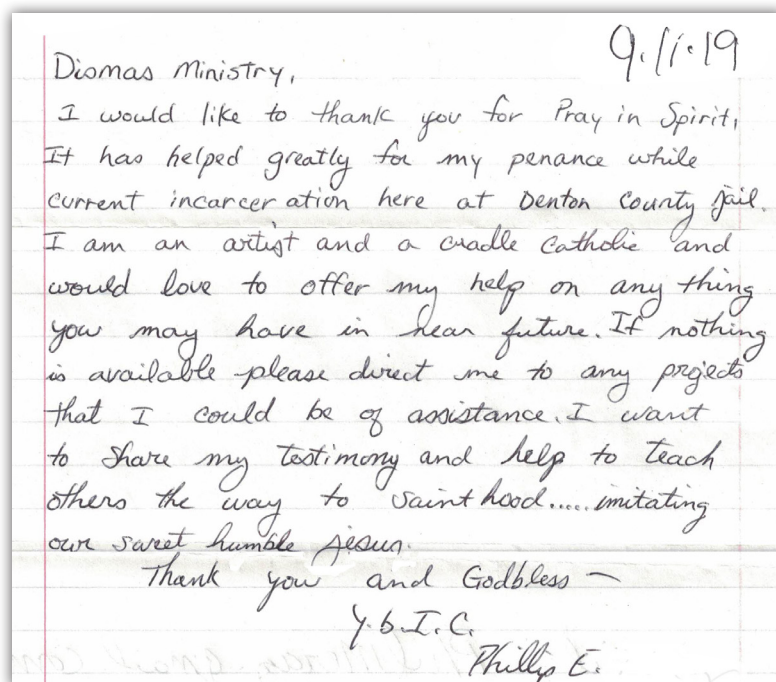 9.11.19
Dismas Ministry,
I would like to thank you for Pray in Spirit,
It has helped greatly for my penance while
current incarceration here at Denton County Jail.
I am an artist and a cradle Catholic and
would love to offer my help on any thing
you may have in near future. If nothing
is available please direct me to any projects
that I could be of assistance. I want
to share my testimony and help to teach
others the way to Saint hood..... imitating
our sweet humble Jesus.
Thank you and Godbless —
Y.b.I.C.
Phillip E.